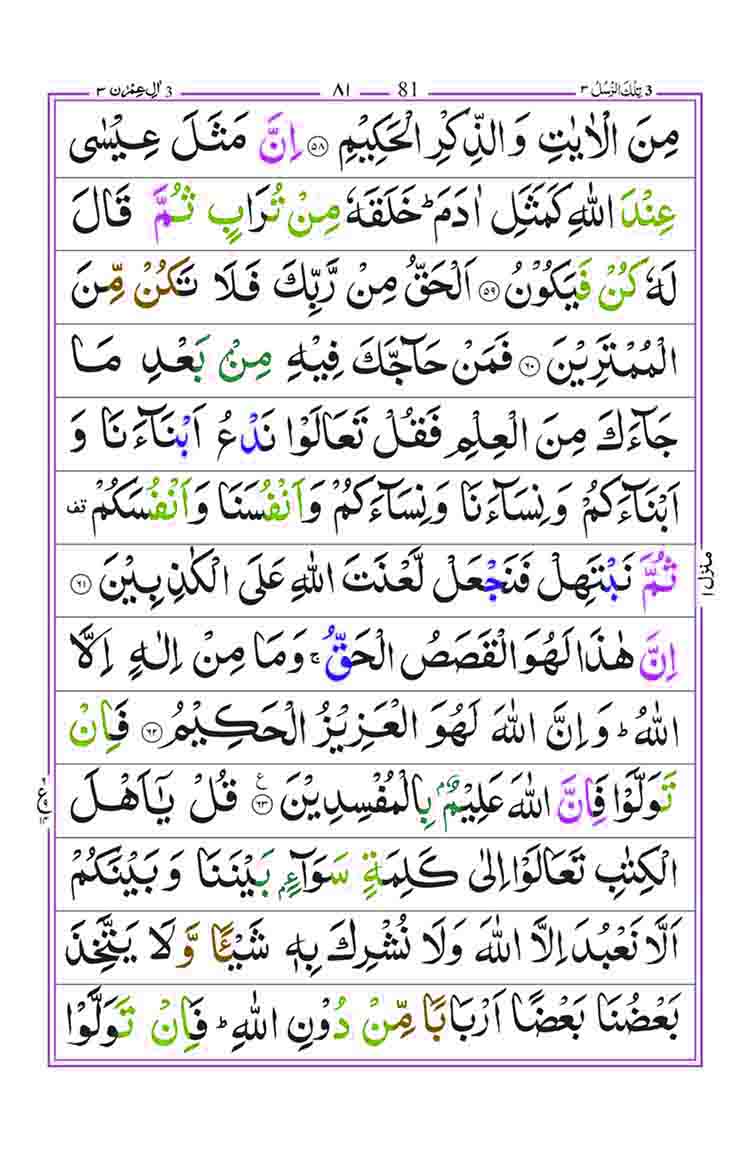 3 تِلْكَ الرُّسُلُ ٣ 81 ٨١ 3 اٰلِ عِمْرٰن ٣
مِنَ الْاٰيٰتِ وَالذِّكْرِ الْحَكِيْمِ ۝٥٨ اِنَّ مَثَلَ عِيْسٰى
عِنْدَ اللّٰهِ كَمَثَلِ اٰدَمَ ؕ خَلَقَهٗ مِنْ تُرَابٍ ثُمَّ قَالَ
لَهٗ كُنْ فَيَكُوْنُ ۝٥٩ اَلْحَقُّ مِنْ رَّبِّكَ فَلَا تَكُنْ مِّنَ
الْمُمْتَرِيْنَ ۝٦٠ فَمَنْ حَآجَّكَ فِيْهِ مِنْۢ بَعْدِ مَا
جَآءَكَ مِنَ الْعِلْمِ فَقُلْ تَعَالَوْا نَدْعُ اَبْنَآءَنَا وَ
اَبْنَآءَكُمْ وَنِسَآءَنَا وَنِسَآءَكُمْ وَاَنْفُسَنَا وَاَنْفُسَكُمْ قف
ثُمَّ نَبْتَهِلْ فَنَجْعَلْ لَّعْنَتَ اللّٰهِ عَلَى الْكٰذِبِيْنَ ۝٦١
منزل ١
اِنَّ هٰذَا لَهُوَ الْقَصَصُ الْحَقُّ ۚ وَمَا مِنْ اِلٰهٍ اِلَّا
اللّٰهُ ؕ وَاِنَّ اللّٰهَ لَهُوَ الْعَزِيْزُ الْحَكِيْمُ ۝٦٢ فَاِنْ
تَوَلَّوْا فَاِنَّ اللّٰهَ عَلِيْمٌۢ بِالْمُفْسِدِيْنَ ۝٦٣ ع قُلْ يٰۤاَهْلَ
الْكِتٰبِ تَعَالَوْا اِلٰى كَلِمَةٍ سَوَآءٍۭ بَيْنَنَا وَبَيْنَكُمْ
اَلَّا نَعْبُدَ اِلَّا اللّٰهَ وَلَا نُشْرِكَ بِهٖ شَيْـًٔا وَّلَا يَتَّخِذَ
بَعْضُنَا بَعْضًا اَرْبَابًا مِّنْ دُوْنِ اللّٰهِ ؕ فَاِنْ تَوَلَّوْا